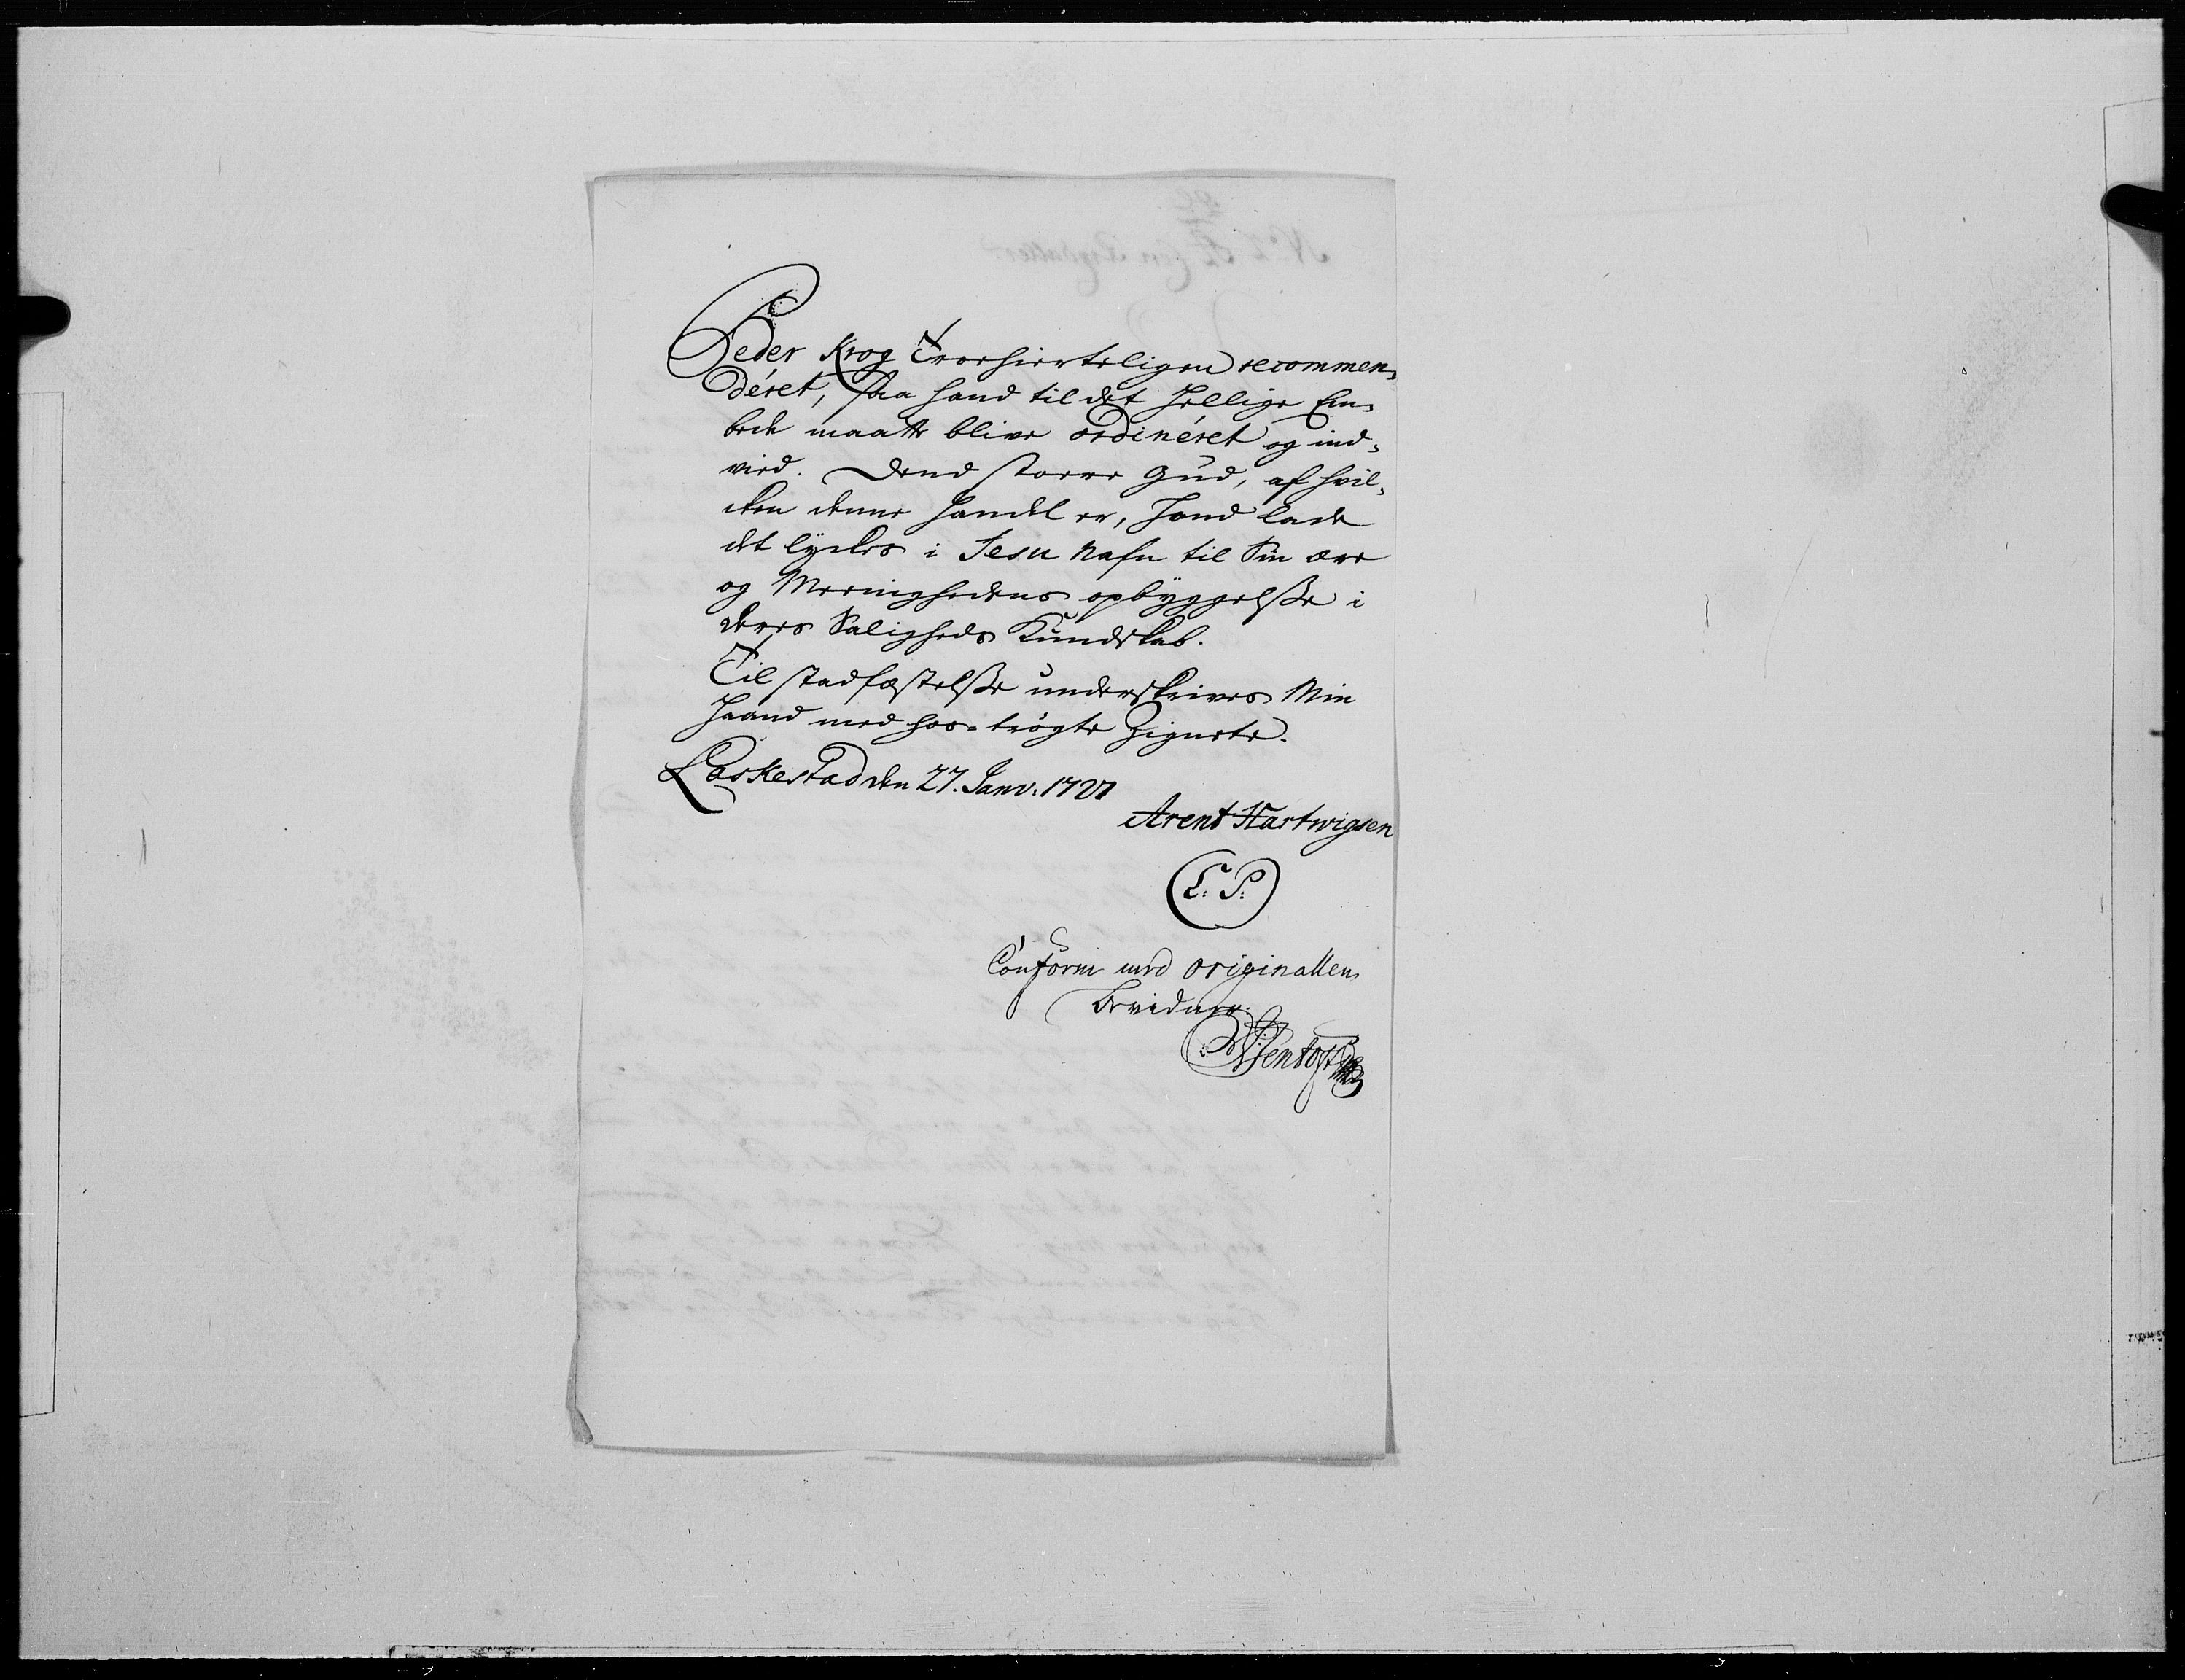 Peder Krog Troehierteligen recommen-
déret, saa hand til det hellige Em-
bede maatte blive ordinéret og ind-
vied. Dend stoere Gud, af hvil-
cken denne handel er, hand lade
det lyckes i Jesu Nafn til Sin ære
og Meenighedens opbyggelsse i
deres Saligheds Kundskab.
Til stadfæstelsse underskrives Min
Haand med hos-trögte Zignete.
Laskestad den 27. Janv: 1727
Arent Hartwigsen
L: S:
Conform med originallen
Tevidner